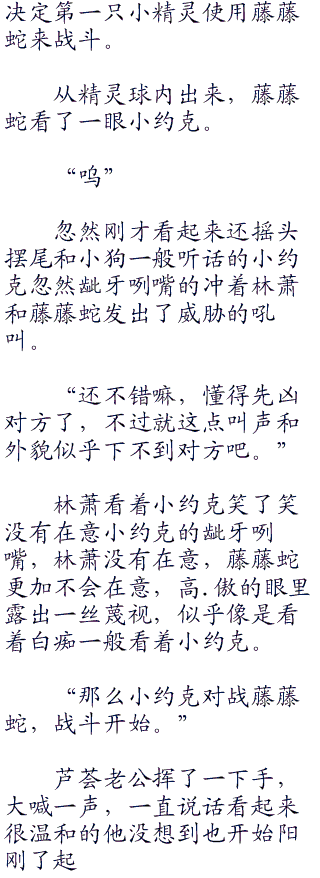 决定第一只小精灵使用藤藤
蛇来战斗。
从精灵球内出来，藤藤
蛇看了一眼小约克。
“呜”
忽然刚才看起来还摇头
摆尾和小狗一般听话的小约
克忽然龇牙咧嘴的冲着林萧
和藤藤蛇发出了威胁的吼
叫。
“还不错嘛，懂得先凶
对方了，不过就这点叫声和
外貌似乎下不到对方吧。”
林萧看着小约克笑了笑
没有在意小约克的龇牙咧
嘴，林萧没有在意，藤藤蛇
更加不会在意，高.傲的眼里
露出一丝蔑视，似乎像是看
着白痴一般看着小约克。
“那么小约克对战藤藤
蛇，战斗开始。”
芦荟老公挥了一下手，
大喊一声，一直说话看起来
很温和的他没想到也开始阳
刚了起